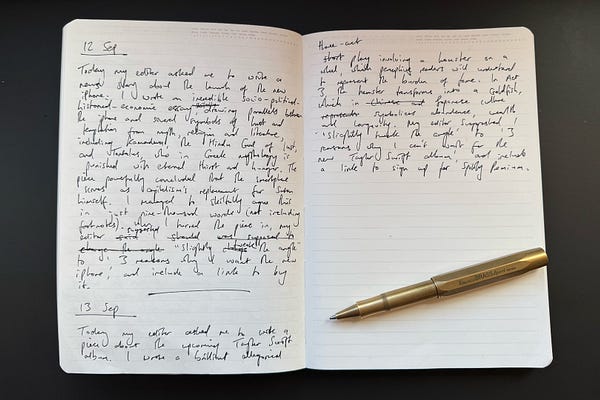 12 Sep
Today my editor asked me to write a
news story about the launch of the new
iphone. I wrote an incredible socio-political-
historical-economic essay drawing parallels between
the iphone and several symbols of lust and
temptation from myth, religion and literature,
including Kamadeva, the Hindu God of lust,
and Tantalus, who in Greek mythology is
punished with eternal thirst and hunger. The
piece powerfully concluded that the smartphone
serves as capitalism's replacement for Satan
himself. I managed to skilfully argue this
in just nine-thousand words (not including
footnotes). When I turned the piece in, my
editor said suggested I should
change the angle 'slightly tweak the angle'
to '3 reasons why I want the new
iphone', and include a link to buy
it.
13 Sep
Today my editor asked me to write a
piece about the upcoming Taylor Swift
album. I wrote a brilliant allegorical
three-act
short play involving a hamster on a
wheel which perceptive readers will understand
to represent the burden of fame. In Act
3 the hamster transforms into a Goldfish,
which in Chinese and Japanese culture
represents symbolises abundance, wealth
and longevity. My editor suggested I
'slightly tweak the angle' to '3
reasons why I can't wait for the
new Taylor Swift album', and include
a link to sign up for Spotify Premium.